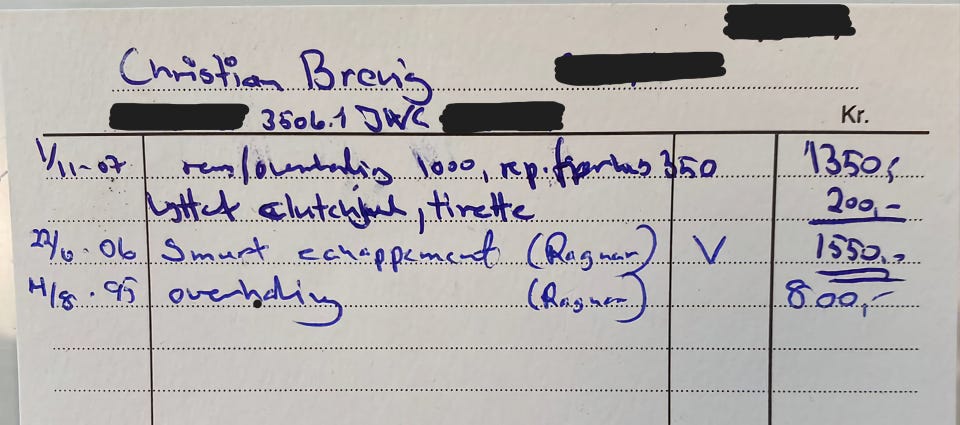 Christian Brevig
3506.1 JWC
Kr.
1/11-07 rens/overhaling 1000, rep. 350 1350,-
clutchhjul, tirette 200,-
22/6.06 Smurt echappement (Ragnar) V 1550.-
14/8.95 overhaling (Ragnar) 800,-